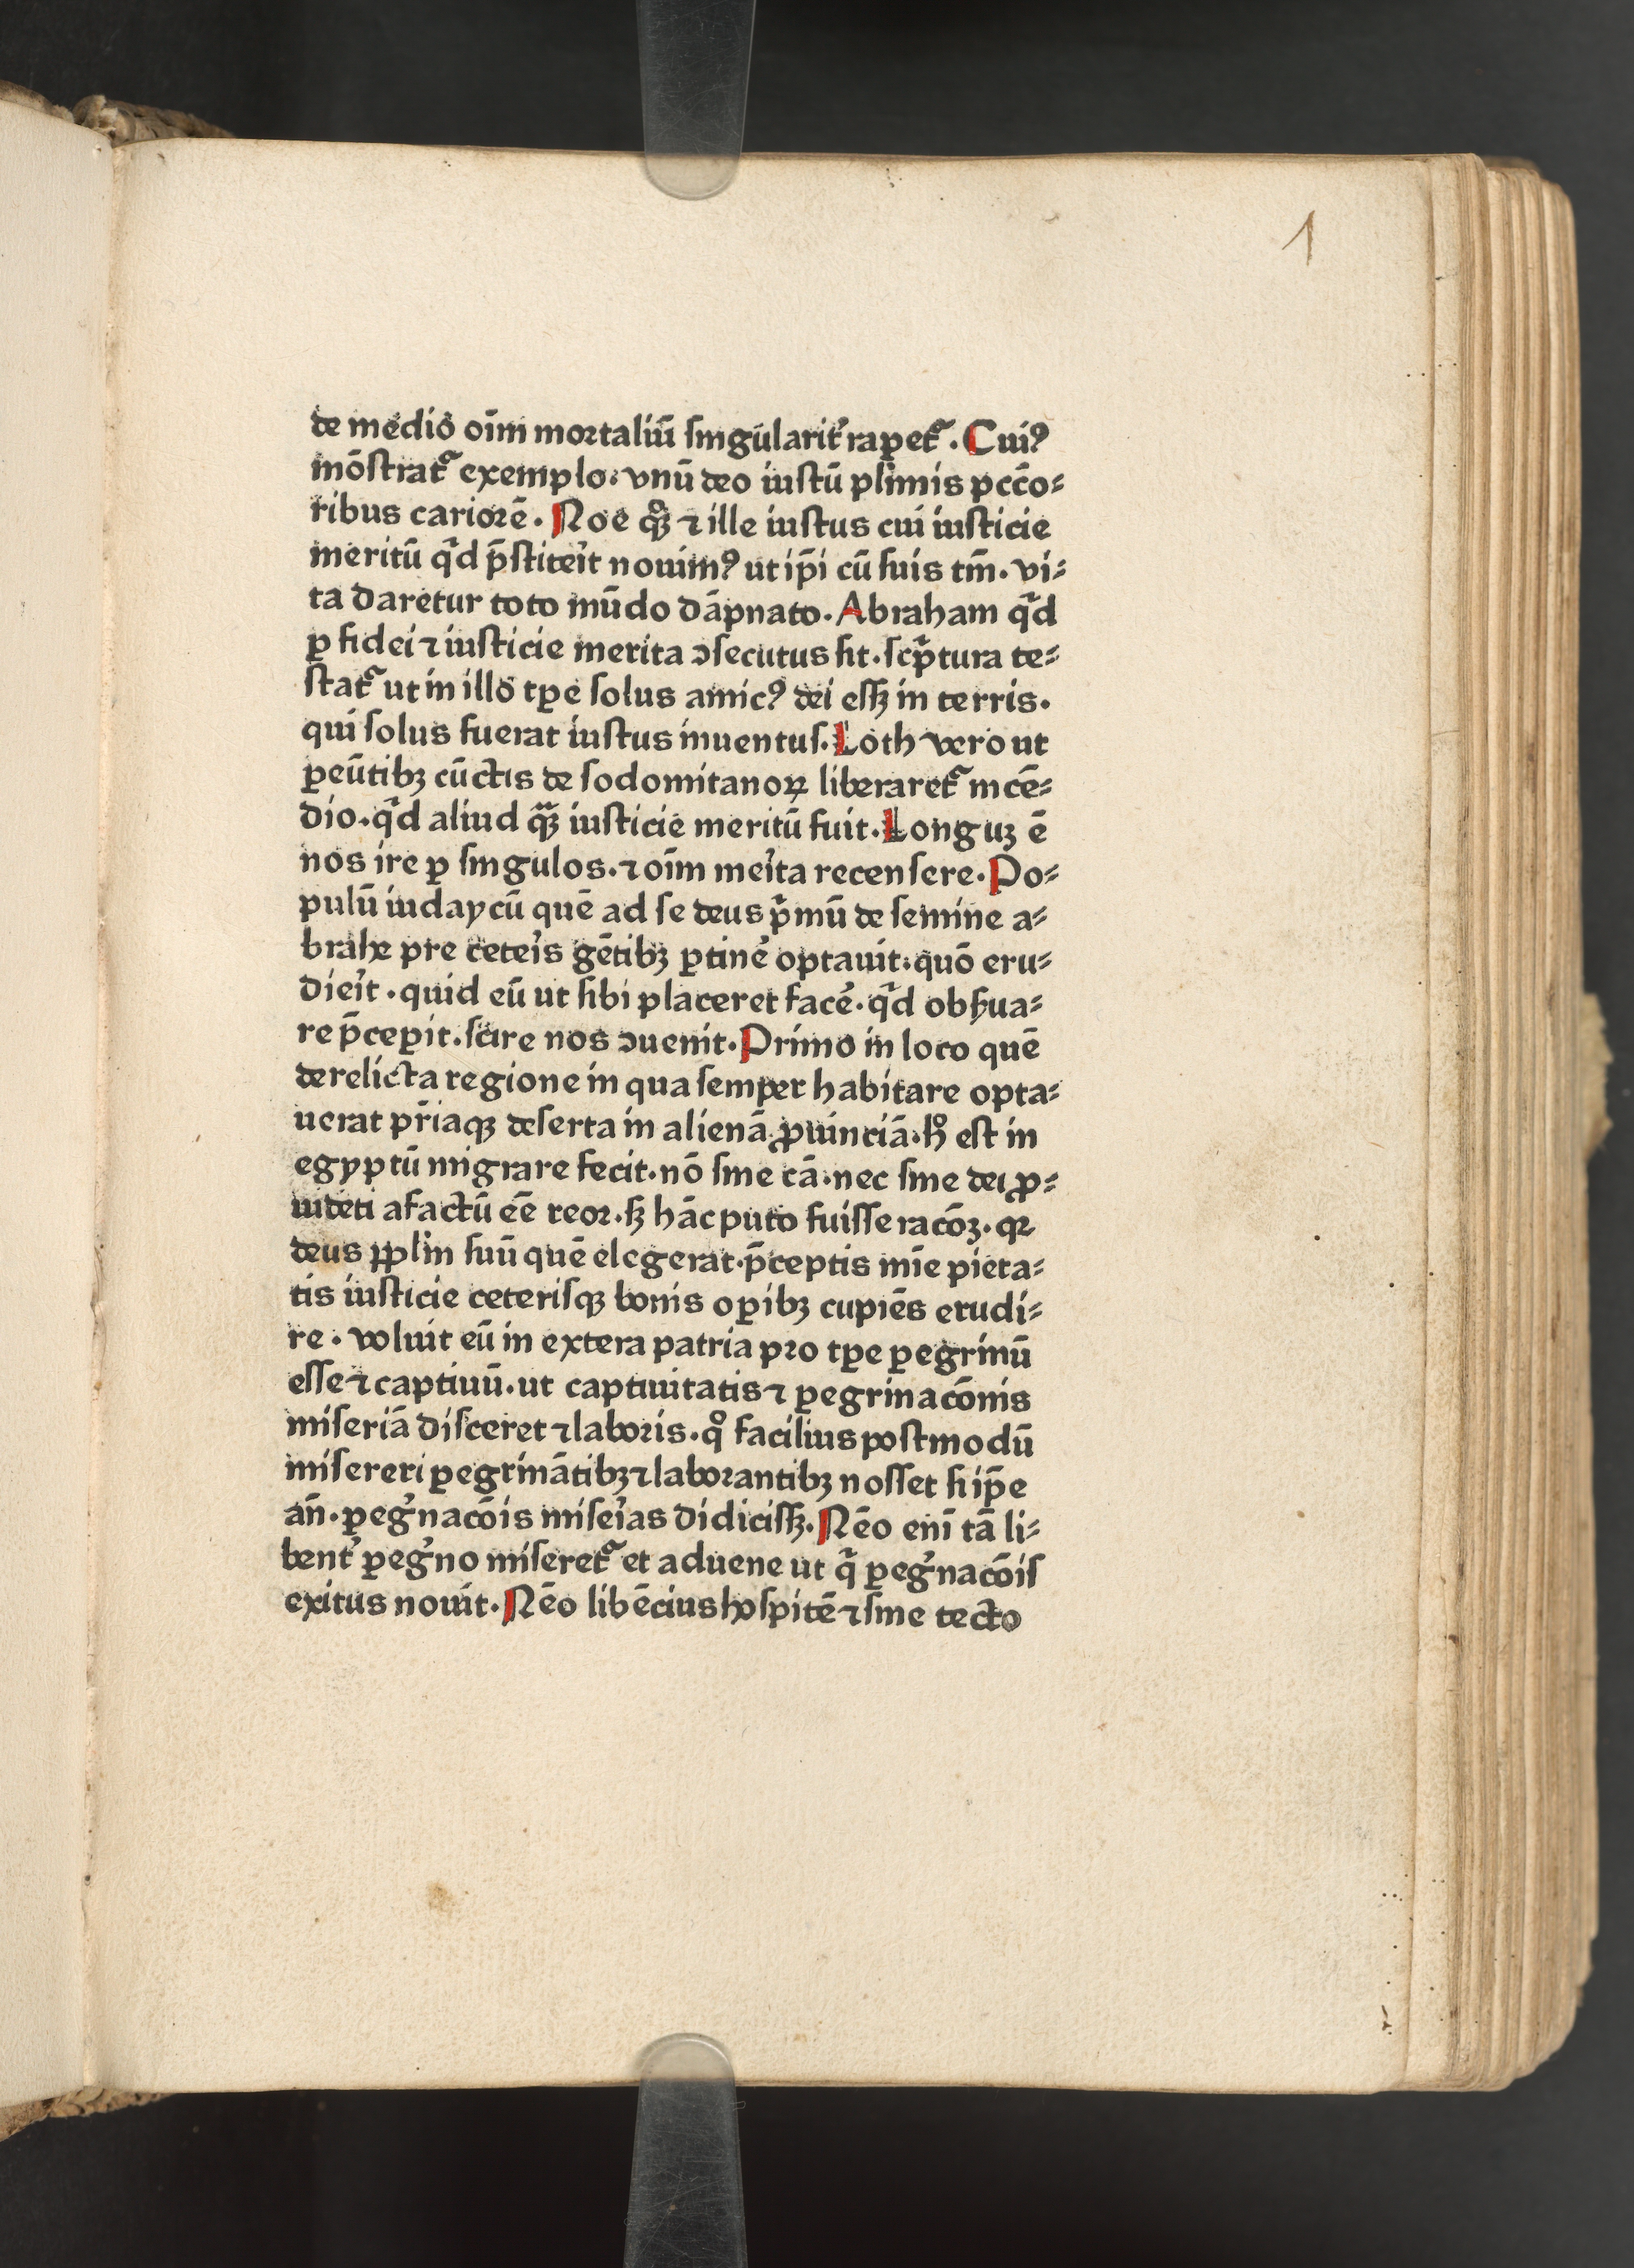 1
de medio oīm mortaliū singularit᷑ rapet᷑. Cuiꝰ
mōstrat᷑ exemplo. vnū deo iustū pl̄imis pcc̄o⸗
ribus cariorē. Noe qͦꝫ ⁊ ille iustus cui iusticie
meritū qͥd p̄stiteit nouimꝰ ut ip̄i cū suis tm̄. vi⸗
ta daretur toto mūdo dāpnato. Abraham qͥd
ꝑ fidei ⁊ iusticie merita ↄsecutus sit. scͥptura te⸗
stat᷑ ut in illo tꝑe solus amicꝰ dei essꝫ in terris.
qui solus fuerat iustus inuentus. Loth vero ut
ꝑeūtibꝫ cūctis de sodomitanoꝝ liberaret᷑ incē⸗
dio. qͥd aliud qͣꝫ iusticie meritū fuit. Longuꝫ ē
nos ire ꝑ singulos. ⁊ oīm meita recensere. Po⸗
pulū iudaycū quē ad se deus pͥmū de semine a⸗
brahe pre ceteis gētibꝫ ꝑtine᷑ optauit. quō eru⸗
dieit. quid eū ut sibi placeret face᷑. qͥd obẜua⸗
re p̄cepit. scire nos ↄuenit. Primo in loco quē
derelicta regione in qua semper habitare opta⸗
uerat pr̄iaqꝫ deserta in alienā ꝓuinciā. hͦ est in
egyptū migrare fecit. nō sine cā. nec sine dei ꝓ⸗
uidēti a factū eē reor. sꝫ hāc puto fuisse racōꝫ. qꝛ
deus pp̄lm suū quē elegerat. p̄ceptis mīe pieta⸗
tis iusticie ceterisqꝫ bonis oꝑibꝫ cupiēs erudi⸗
re. voluit eū in extera patria pro tꝑe ꝑegrinū
esse ⁊ captiuū. ut captiuitatis ⁊ ꝑegrinacōnis
miseriā disceret ⁊ laboris. qͦ facilius postmodū
misereri ꝑegrinātibꝫ ⁊ laborantibꝫ nosset si ip̄e
an̄. ꝑegͥnacōis miseias didicissꝫ. Nēo enī tā li⸗
bent᷑ ꝑegͥno miseret᷑ et aduene ut qͥ ꝑegͥnacōis
exitus nouit. Nēo libēcius hospitē ⁊ sine tecto